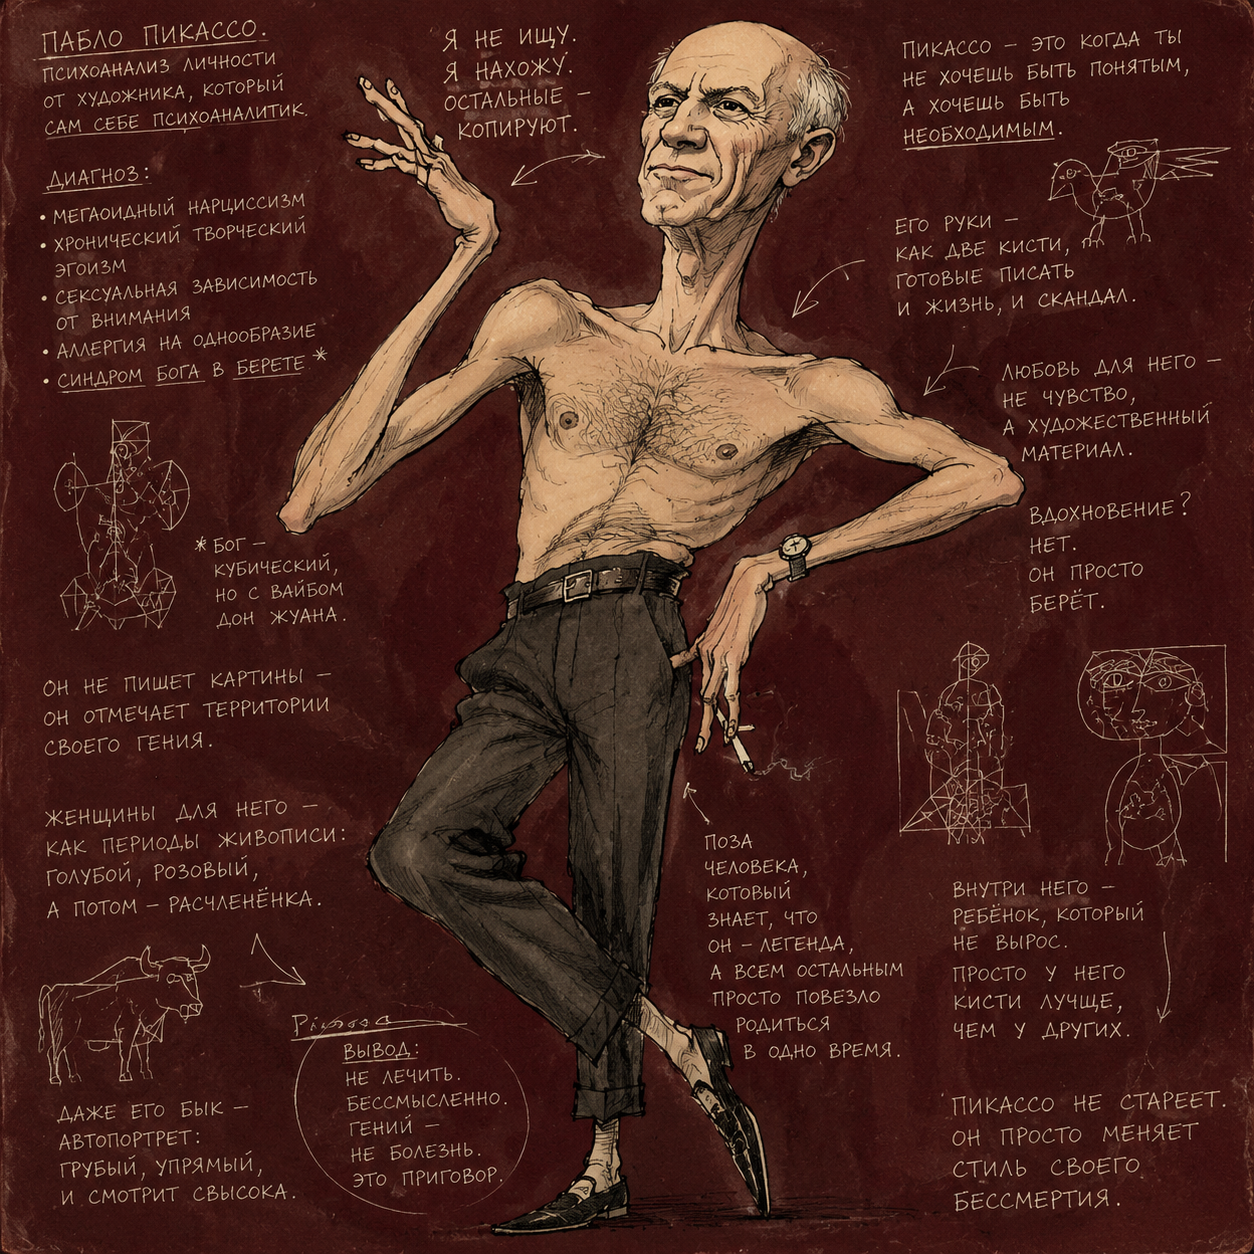 ПАБЛО ПИКАССО.
ПСИХОАНАЛИЗ ЛИЧНОСТИ
ОТ ХУДОЖНИКА, КОТОРЫЙ
САМ СЕБЕ ПСИХОАНАЛИТИК.
ДИАГНОЗ:
• МЕГАОИДНЫЙ НАРЦИССИЗМ
• ХРОНИЧЕСКИЙ ТВОРЧЕСКИЙ
ЭГОИЗМ
• СЕКСУАЛЬНАЯ ЗАВИСИМОСТЬ
ОТ ВНИМАНИЯ
• АЛЛЕРГИЯ НА ОДНООБРАЗИЕ
• СИНДРОМ БОГА В БЕРЕТЕ *
* БОГ –
КУБИЧЕСКИЙ,
НО С ВАЙБОМ
ДОН ЖУАНА.
ОН НЕ ПИШЕТ КАРТИНЫ –
ОН ОТМЕЧАЕТ ТЕРРИТОРИИ
СВОЕГО ГЕНИЯ.
ЖЕНЩИНЫ ДЛЯ НЕГО –
КАК ПЕРИОДЫ ЖИВОПИСИ:
ГОЛУБОЙ, РОЗОВЫЙ,
А ПОТОМ – РАСЧЛЕНЁНКА.
ДАЖЕ ЕГО БЫК –
АВТОПОРТРЕТ:
ГРУБЫЙ, УПРЯМЫЙ,
И СМОТРИТ СВЫСОКА.
Я НЕ ИЩУ.
Я НАХОЖУ.
ОСТАЛЬНЫЕ –
КОПИРУЮТ.
ВЫВОД:
НЕ ЛЕЧИТЬ.
БЕССМЫСЛЕННО.
ГЕНИЙ –
НЕ БОЛЕЗНЬ.
ЭТО ПРИГОВОР.
ПОЗА
ЧЕЛОВЕКА,
КОТОРЫЙ
ЗНАЕТ, ЧТО
ОН – ЛЕГЕНДА,
А ВСЕМ ОСТАЛЬНЫМ
ПРОСТО ПОВЕЗЛО
РОДИТЬСЯ
В ОДНО ВРЕМЯ.
ПИКАССО – ЭТО КОГДА ТЫ
НЕ ХОЧЕШЬ БЫТЬ ПОНЯТЫМ,
А ХОЧЕШЬ БЫТЬ
НЕОБХОДИМЫМ.
ЕГО РУКИ –
КАК ДВЕ КИСТИ,
ГОТОВЫЕ ПИСАТЬ
И ЖИЗНЬ, И СКАНДАЛ.
ЛЮБОВЬ ДЛЯ НЕГО –
НЕ ЧУВСТВО,
А ХУДОЖЕСТВЕННЫЙ
МАТЕРИАЛ.
ВДОХНОВЕНИЕ?
НЕТ.
ОН ПРОСТО
БЕРЁТ.
ВНУТРИ НЕГО –
РЕБЁНОК, КОТОРЫЙ
НЕ ВЫРОС.
ПРОСТО У НЕГО
КИСТИ ЛУЧШЕ,
ЧЕМ У ДРУГИХ.
ПИКАССО НЕ СТАРЕЕТ.
ОН ПРОСТО МЕНЯЕТ
СТИЛЬ СВОЕГО
БЕССМЕРТИЯ.